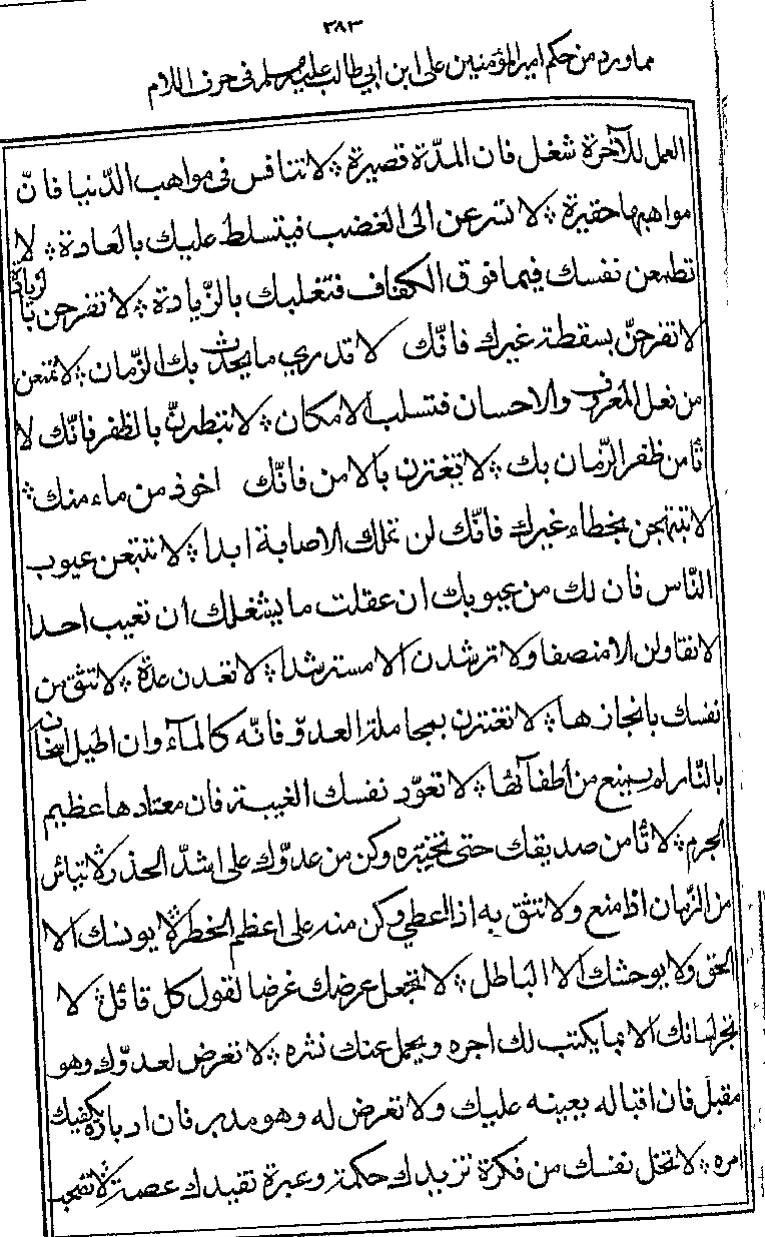 ٣٨٣
مما ورد من حكم امير المؤمنين على ابن ابي طالب عليه فى حرف اللام
العمل للآخرة شغل فان المدّة قصيرة ؞ لا تنافس فى مواهب الدّنيا فانّ
مواهبها حقيرة ؞ لا تسرعن الى الغضب فيتسلط عليك بالعادة ؞ لا
تطمعن نفسك فيما فوق الكفاف فتغلبك بالزّيادة ؞ لا تفرحن بالزيادة
لا تفرحنّ بسقطة غيرك فانّك لا تدري ما يحدث بك الزّمان ؞ لا تمتنعن
من فعل المعروف والاحسان فتسلب الامكان ؞ لا تبطرنّ بالظفر فانّك لا
تأمن ظفر الزّمان بك ؞ لا تغترن بالامن فانّك اخوذ من مامنك ؞
لا تبتهجن بخطاء غيرك فانّك لن تملك الاصابة ابدا ؞ لا تتبعن عيوب
النّاس فان لك من عيوبك ان عقلت ما يشغلك ان تعيب احدا
لا تقاولن الا منصفا ولا ترشدن الا مسترشدا ؞ لا تعدن عدّة ؞ لا تثق من
نفسك بانجازها ؞ لا تغترن بمجاملة العدوّ فانّه كالمآء وان اطيل اسخانه
بالنّار لم يمتنع من اطفآئها ؞ لا تعوّد نفسك الغيبة فان معتادها عظيم
الجرم ؞ لا تأمن صديقك حتى تختبره وكن من عدوّك على اشدّ الحذر ؞ لا تيأس
من الزّمان اذا منع ولا تثق به اذا اعطي وكن منه على اعظم الخطر ؞ لا يونسك الا
الحق ولا يوحشك الا الباطل ؞ لا تجعل عرضك غرضا لقول كل قائل ؞ لا
تجر لسانك الا بما يكتب لك اجره ويجمل عنك نشره ؞ لا تعرض لعدوّك وهو
مقبل فان اقباله يعينه عليك ولا تعرض له وهو مدبر فان ادباره يكفيك
امره ؞ لا تخل نفسك من فكرة تزيدك حكمة وعبرة تفيدك عصمة ؞ لا تصحب